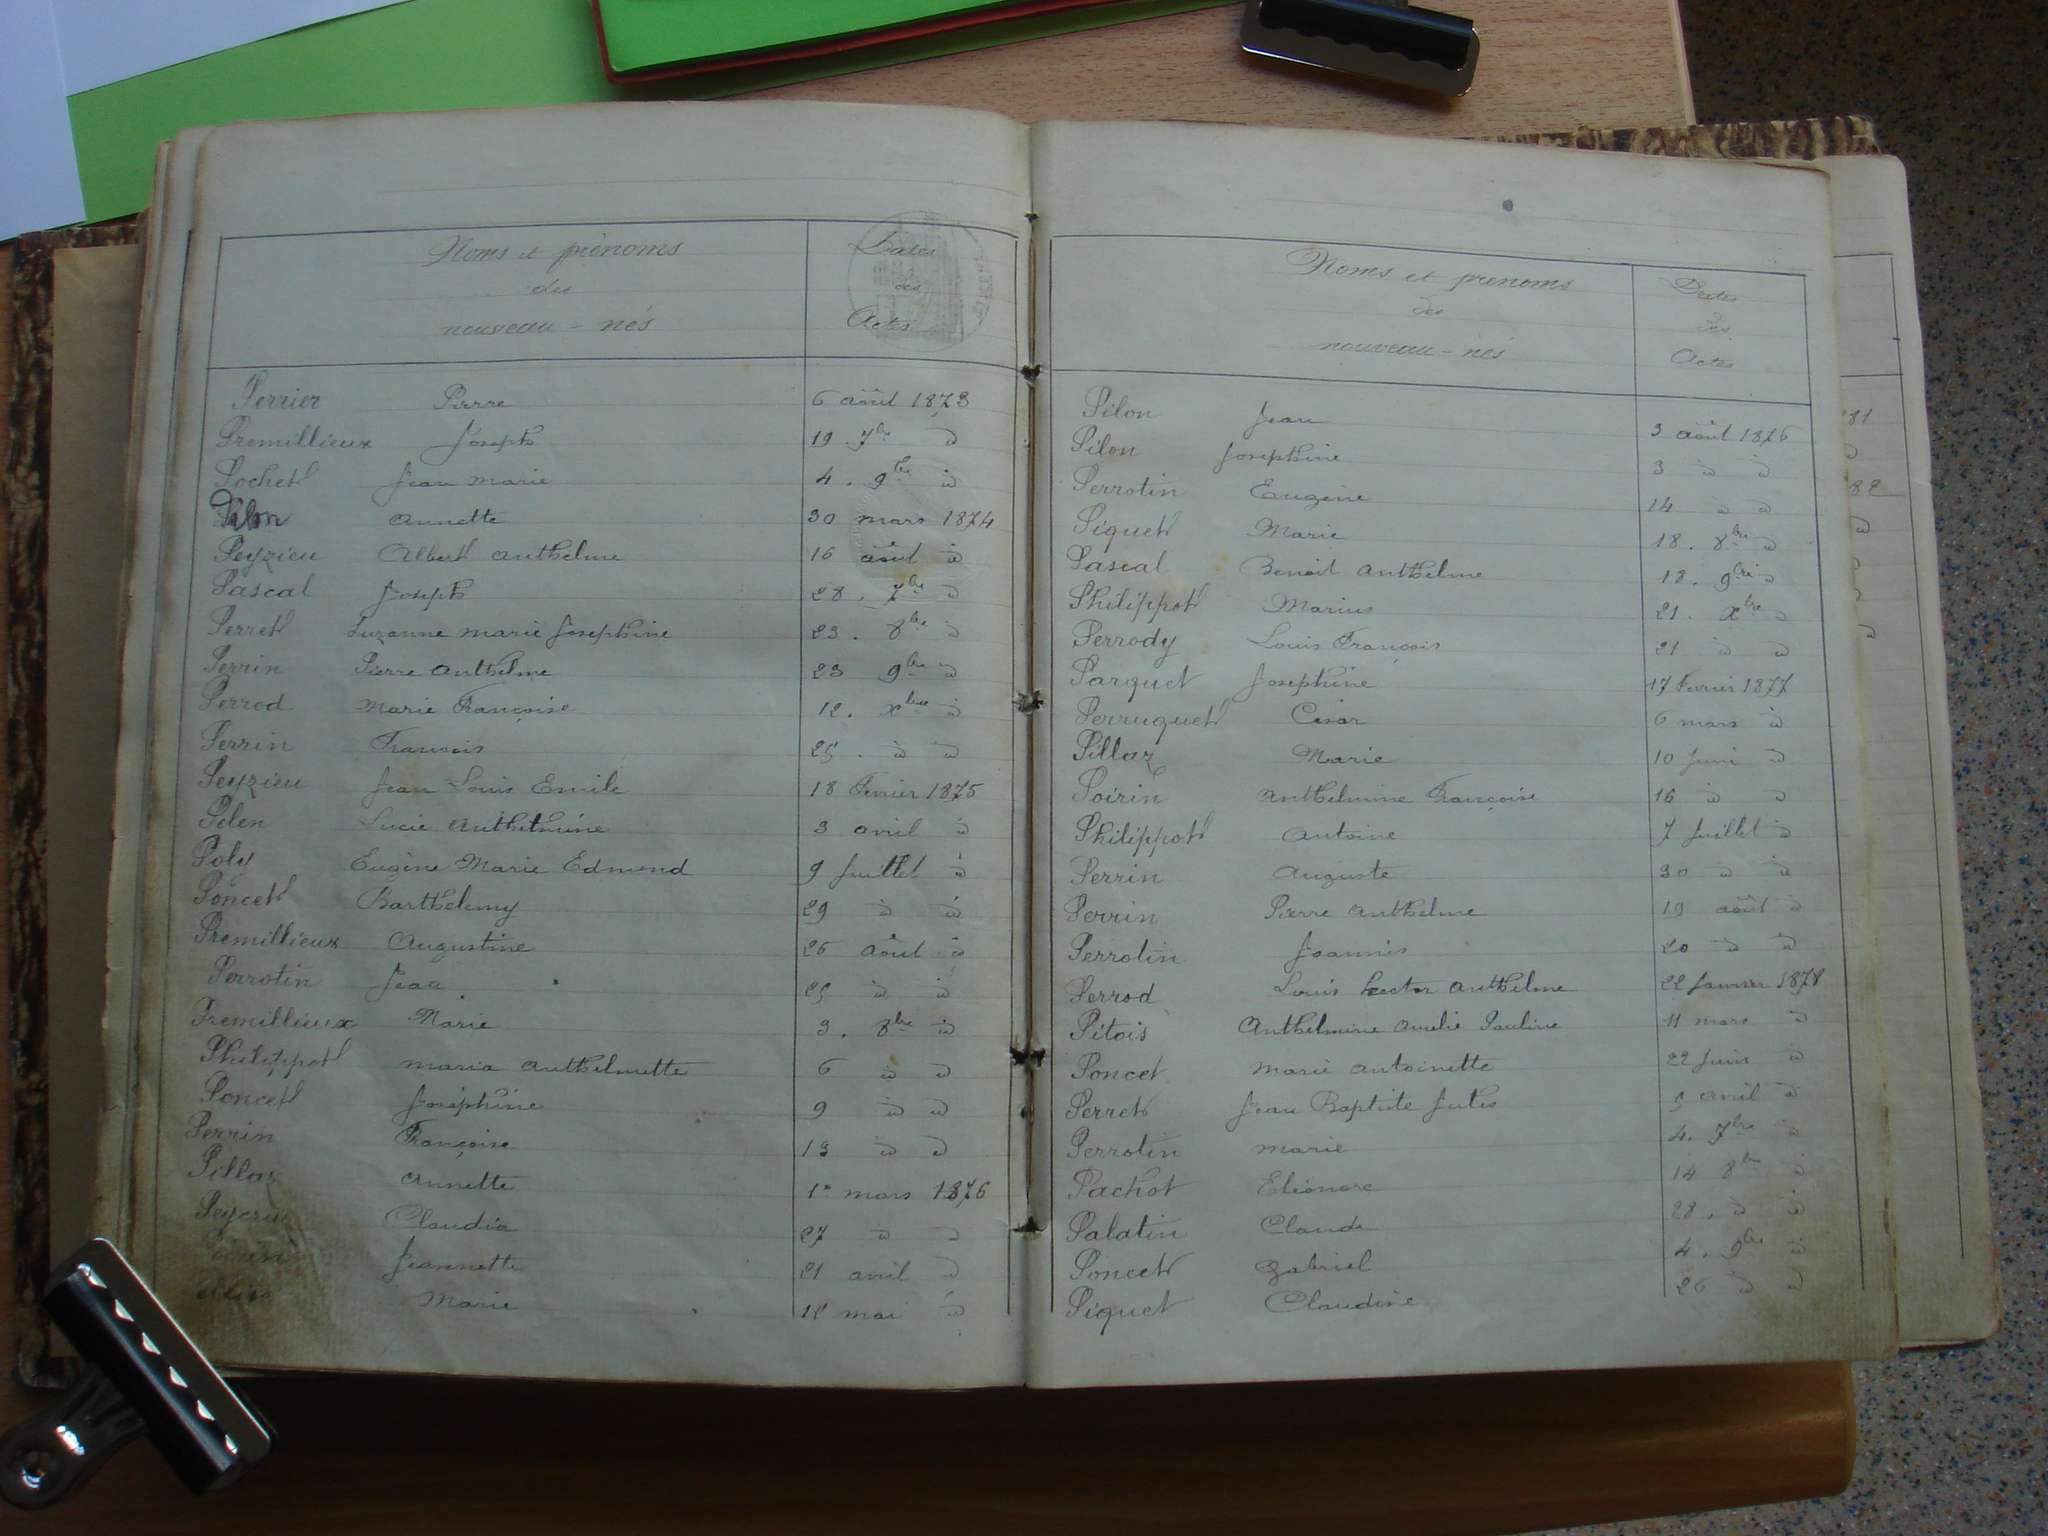 Noms et prénoms
des
nouveau-nés
Dates
des
Actes
Perrier Pierre 6 août 1873
Premillieux Joseph 19 7bre d
Pochet Jean Marie 4. 9bre d
Pilon Annette 30 mars 1874
Peyzieu Albert Anthelme 16 août d
Pascal Joseph 28. 7bre d
Perret Suzanne Marie Josephine 23. 8bre d
Perrin Pierre Anthelme 23 9bre d
Perrod Marie Françoise 12. xbre d
Perrin François 25. d d
Peyzieu Jean Louis Emile 18 Fevrier 1875
Pelen Lucie Anthelmine 3 avril d
Poly Eugène Marie Edmond 9 Juillet d
Poncet Barthelemy 29 d d
Premillieux Augustine 25 août d
Perrotin Jean 25 d d
Premillieux Marie 3. 8bre d
Philippot Maria Anthelmette 6 d d
Poncet Joséphine 9 d d
Perrin Françoise 13 d d
Pillaz Annette 1er mars 1876
Claudia 27 d d
Jeannette 21 avril d
Marie 12 mai d
Noms et prenoms
des
nouveau-nés
Dates
des
Actes
Pilon Jean 3 août 1876
Pilon Josephine 3 d d
Perrotin Eugène 14 d d
Piquet Marie 18. 8bre d
Pascal Benoit Anthelme 18. 9bre d
Philippot Marius 21. xbre d
Perrody Louis François 21 d d
Parquet Josephine 17 Fevrier 1877
Perruquet César 6 mars d
Pillaz Marie 10 Juin d
Poirin Anthelmine Françoise 16 d d
Philippot Antoine 7 Juillet d
Perrin Auguste 30 d d
Perrin Pierre Anthelme 19 août d
Perrotin Joannis 20 d d
Perrod Louis Hector Anthelme 22 Janvier 1878
Pitois Anthelmine Amelie Pauline 11 mars d
Poncet Marie Antoinette 22 Juin d
Perret Jean Baptiste Jules 5 avril d
Perrotin Marie 4. 7bre d
Pachot Eléonore 14 8bre d
Palatin Claude 28. d d
Poncet Gabriel 4. 9bre d
Piquet Claudine 26 d d
81
82